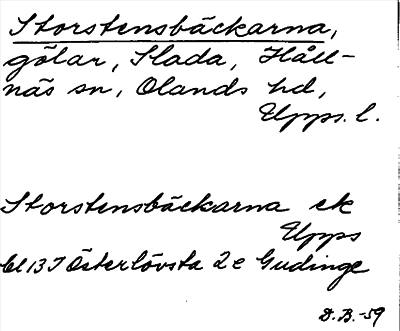 Storstensbäckarna,
gölar, Slada, Håll-
näs sn, Olands hd,
Upps. l.
Storstensbäckarna ek
Upps
bl 13 I Österlövsta 2 e Gudinge
D.B.-59